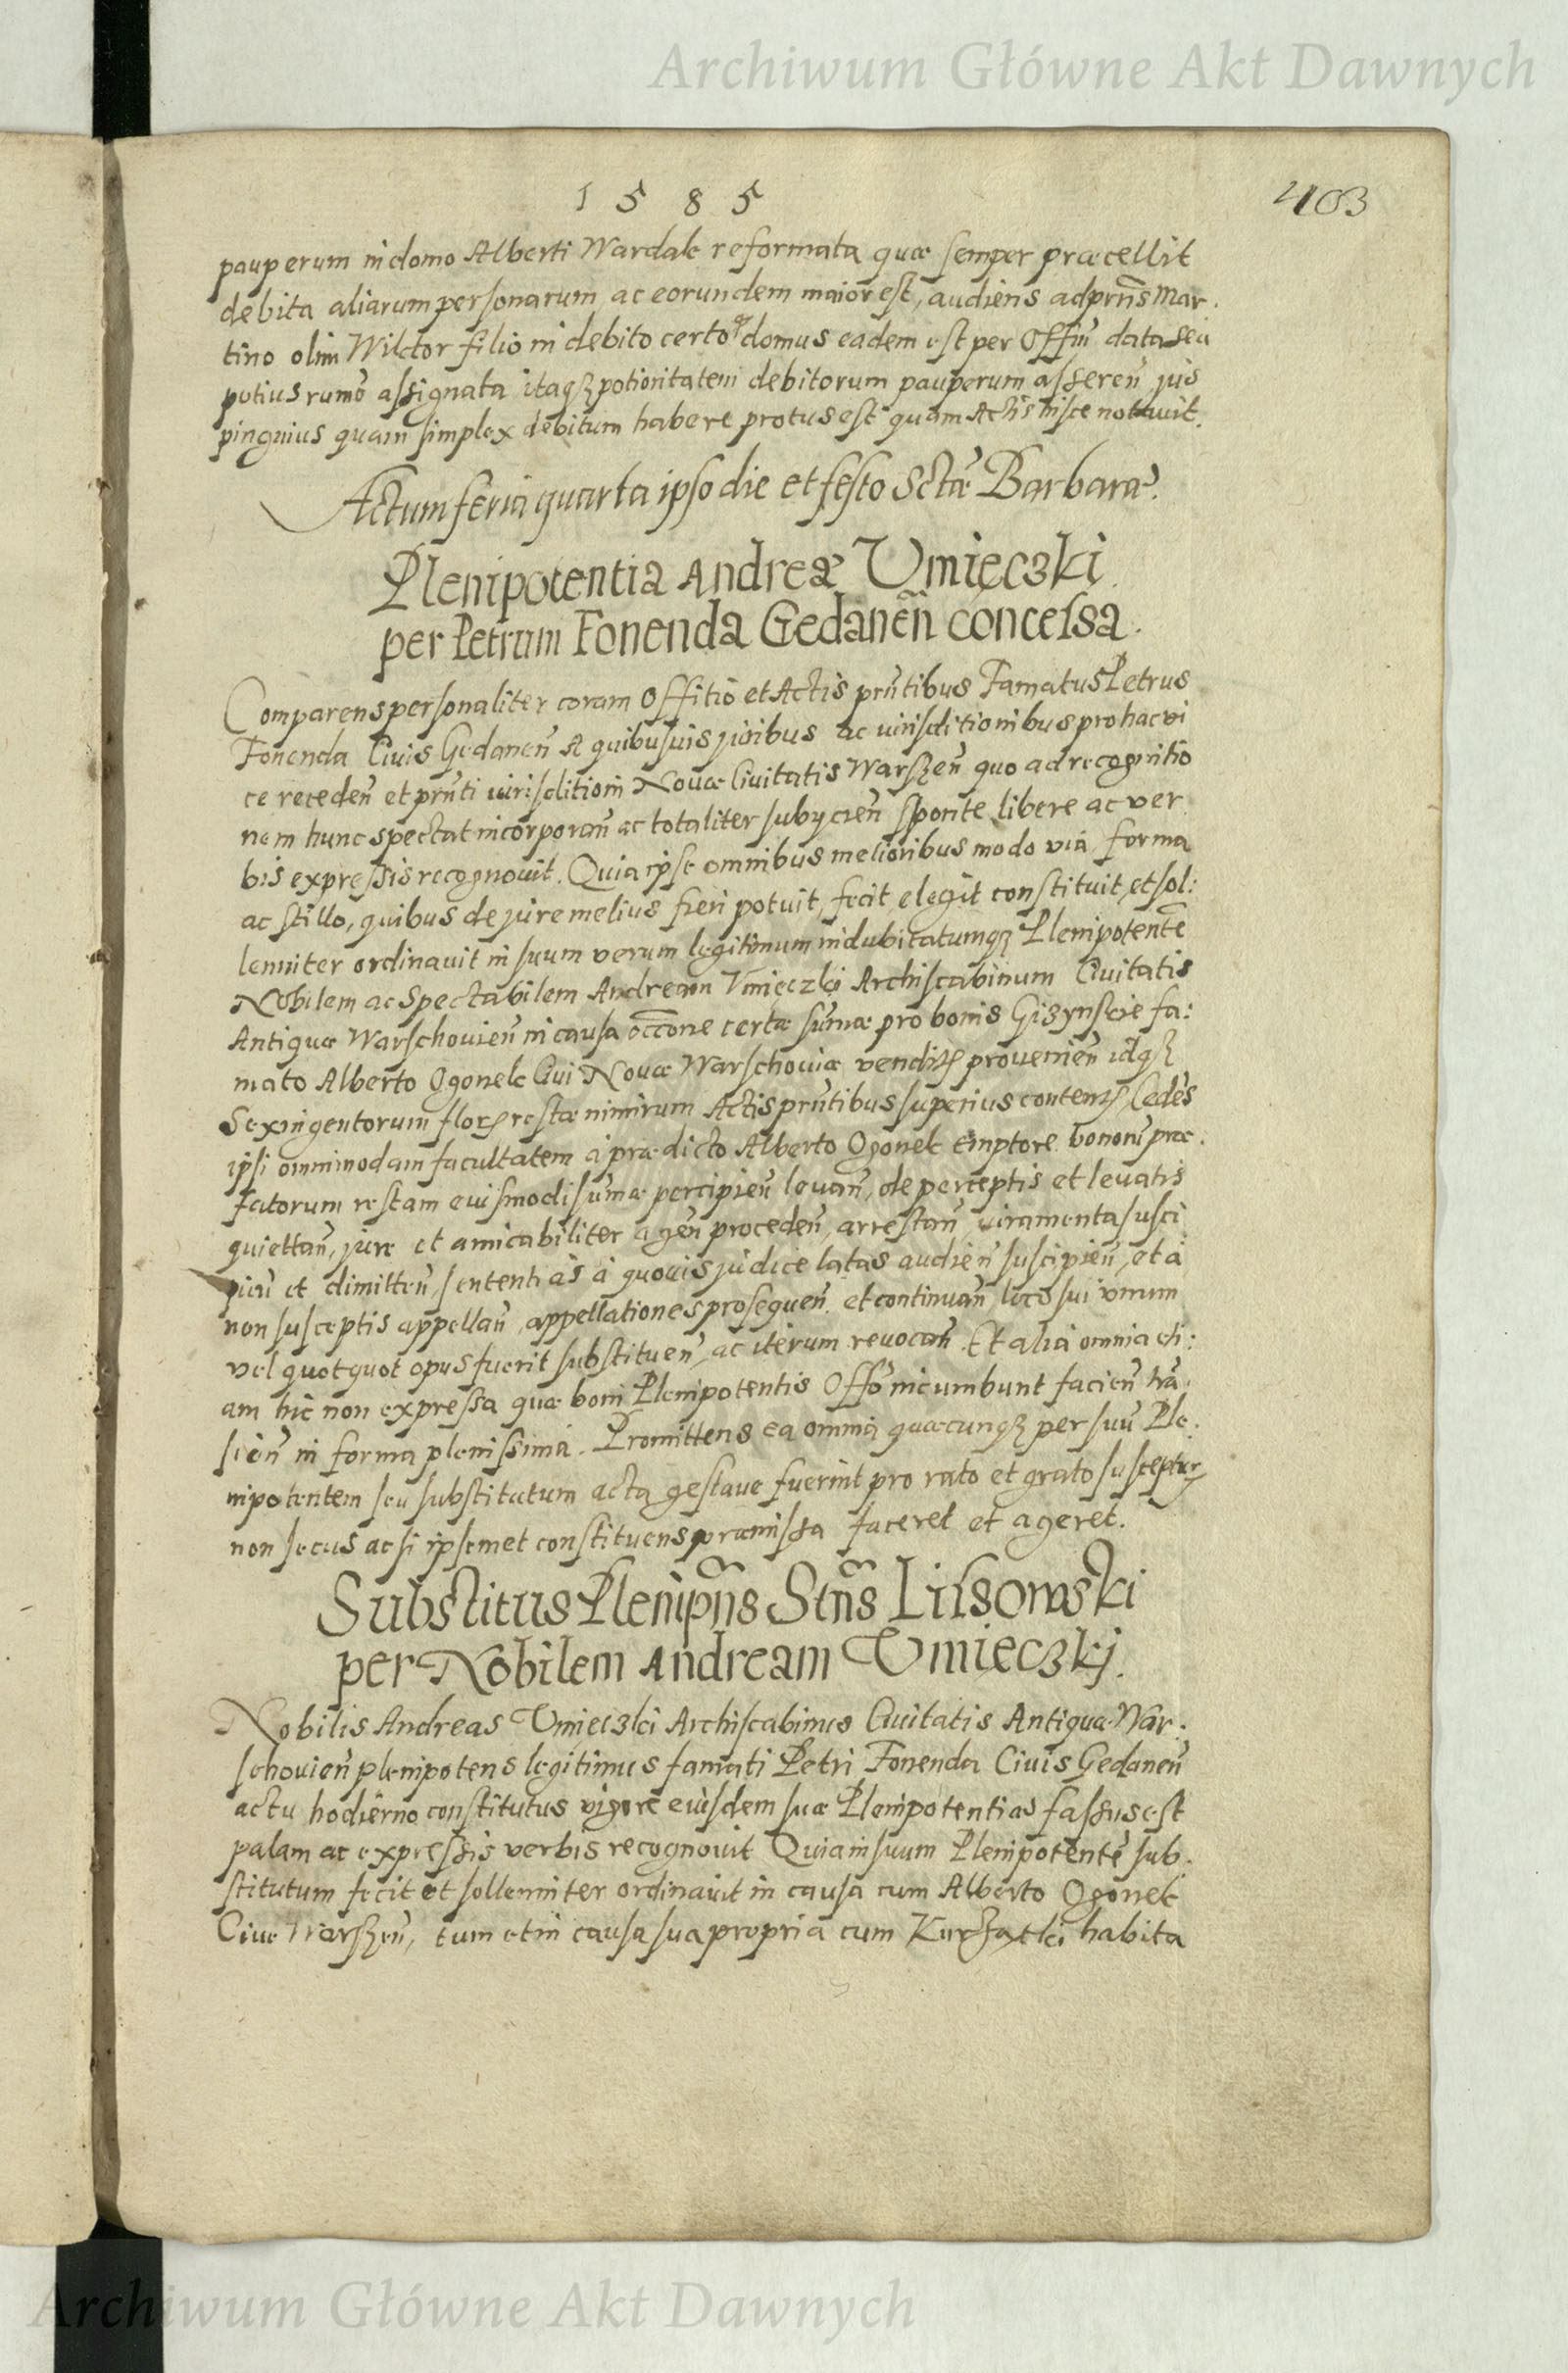 Archiwum Główne Akt Dawnych
1 5 8 5
403
pauperum in domo Alberti Wardak reformata quæ semper præcellit
debita aliarum personarum ac eorundem maior est, audiens ad prñs Mar.
tino olim Wiktor filio in debito certo domus eadem est per Offm̃ data seu
potius assignata itaqꝫ potioritatem debitorum pauperum asseren̄ jus
pinguius quam simplex debitum habere est quam Actis hisce notavit.
Actum feria quarta ipso die et festo Sctæ Barbaræ.
Plenipotentia Andreæ Vmięczki
per Petrum Fonenda Gedanen̄ concessa.
Comparens personaliter coram Offitio et Actis prñtibus Famatus Petrus
Fonenda Civis Gedanen̄ A quibusuis juribus ac iurisditionibus pro hac vi
ce receden̄ et prñti iurisditioni Nouæ Ciuitatis Warszen̄ quo ad recognitio
nem hunc spectat incorporan̄ ac totaliter subycien̄ sponte libere ac ver
bis expressis recognouit. Quia ipse omnibus melioribus modo via forma
ac stillo, quibus de jure melius fieri potuit, fecit elegit constituit, et sol:
lenniter ordinauit in suum verum legitimum indubitatumqꝫ Plenipotentē
Nobilem ac Spectabilem Andream Vmięczki Archiscabinum Ciuitatis
Antiquæ Warschouien̄ in causa occõne certæ sum̄æ pro bonis Gizynskie fa:
mato Alberto Ogonek Ciui Nouæ Warschouiæ prouenien̄ idqꝫ
Sexingentorum restæ nimirum Actis prñtibus superius Cedēs
ipsi omnimodam facultatem à prædicto Alberto Ogonek emptore bonorū præ.
fatorum restam euismodi sum̄æ percipien̄ leuan̄, de perceptis et leuatis
quiettan̄, jure et amicabiliter agen̄ proceden̄, arrestan̄ iuramenta susci
pien̄ et dimitten̄, sententias à quouis judice latas audien̄ suscipien̄, et à
non susceptis appellan̄, appellationes prosequen̄ et continuan̄, loco sui vnum
vel quotquot opus fuerit substituen̄, ac iterum reuocan̄. Et alia omnia eti:
am hic non expressa quæ boni Plenipotentis Offõ incumbunt facien̄ trā.
sien̄ in forma plenissima. Promittens ea omnia quæcunqꝫ per suū Ple.
nipotentem seu substitutum acta gestaue fuerint pro rato et grato
non secus ac si ipsemet constituens præmissa faceret et ageret.
Substitus Plenipñs Stñs Lissowski
per Nobilem Andream Vmięczkj.
Nobilis Andreas Vmięczki Archiscabinus Ciuitatis Antiquæ War.
schouien̄ plenipotens legitimus famati Petri Fonenda Ciuis Gedanen̄
actu hodierno constitutus vigore eiusdem suæ Plenipotentiæ fassus est
palam ac expressis verbis recognouit Quia in suum Plenipotentē sub.
stitutum fecit et sollenniter ordinauit in causa cum Alberto Ogonek
Ciue Warszen̄, tum et in causa sua propria cum habita
Archiwum Główne Akt Dawnych